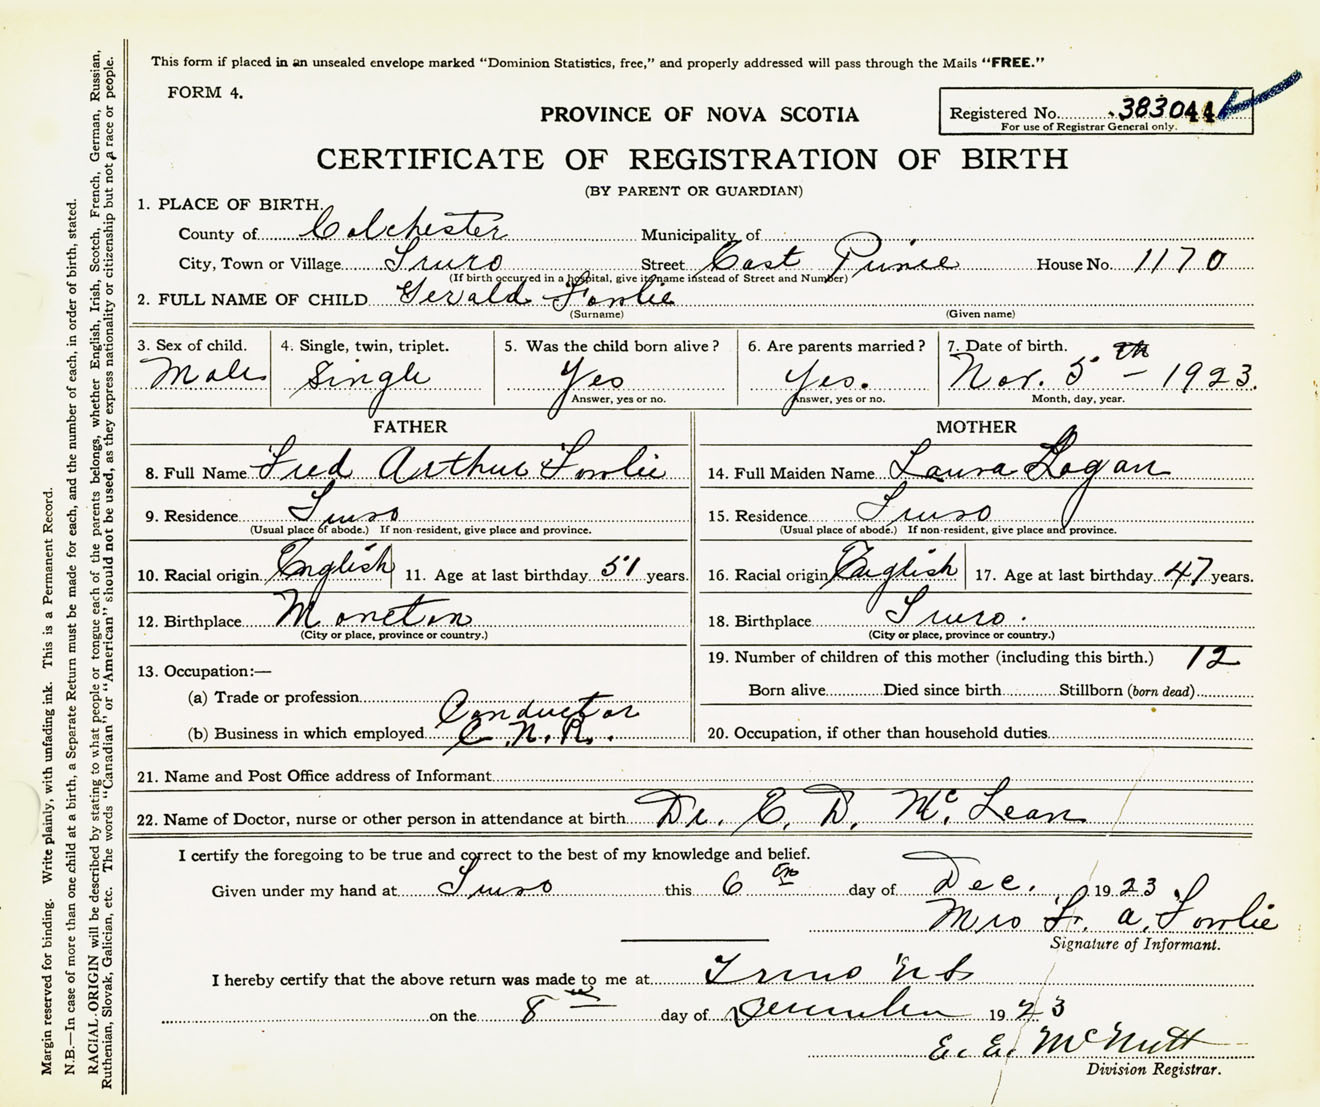 This form if placed in an unsealed envelope marked "Dominion Statistics, free," and properly addressed will pass through the Mails "FREE."
FORM 4.
PROVINCE OF NOVA SCOTIA
Registered No. 383044
For use of Registrar General only.
CERTIFICATE OF REGISTRATION OF BIRTH
(BY PARENT OR GUARDIAN)
1. PLACE OF BIRTH.
County of Colchester Municipality of
City, Town or Village Truro Street East Prince House No. 1170
(If birth occurred in a hospital, give its name instead of Street and Number)
2. FULL NAME OF CHILD Gerald Fowlie
(Surname) (Given name)
3. Sex of child. 4. Single, twin, triplet. 5. Was the child born alive? 6. Are parents married? 7. Date of birth.
Male Single Yes Yes. Nov. 5th 1923.
Answer, yes or no. Answer, yes or no. Month, day, year.
FATHER MOTHER
8. Full Name Fred Arthur Fowlie 14. Full Maiden Name Laura Logan
9. Residence Truro 15. Residence Truro
(Usual place of abode.) If non-resident, give place and province. (Usual place of abode.) If non-resident, give place and province.
10. Racial origin English 11. Age at last birthday 51 years. 16. Racial origin English 17. Age at last birthday 47 years.
12. Birthplace Moncton 18. Birthplace Truro.
(City or place, province or country.) (City or place, province or country.)
13. Occupation:— 19. Number of children of this mother (including this birth.) 12
(a) Trade or profession Conductor Born alive Died since birth Stillborn (born dead)
(b) Business in which employed C.N.R. 20. Occupation, if other than household duties
21. Name and Post Office address of Informant
22. Name of Doctor, nurse or other person in attendance at birth Dr. E. D. McLean
I certify the foregoing to be true and correct to the best of my knowledge and belief.
Given under my hand at Truro this 6th day of Dec. 1923
Mrs F. A. Fowlie
Signature of Informant.
I hereby certify that the above return was made to me at Truro N S
on the 8th day of December 1923
E. E. McNutt
Division Registrar.
Margin reserved for binding. Write plainly, with unfading ink. This is a Permanent Record.
N.B.—In case of more than one child at a birth, a Separate Return must be made for each, and the number of each, in order of birth, stated.
RACIAL ORIGIN will be described by stating to what people or tongue each of the parents belongs, whether English, Irish, Scotch, French, German, Russian,
Ruthenian, Slovak, Galician, etc. The words "Canadian" or "American" should not be used, as they express nationality or citizenship but not a race or people.